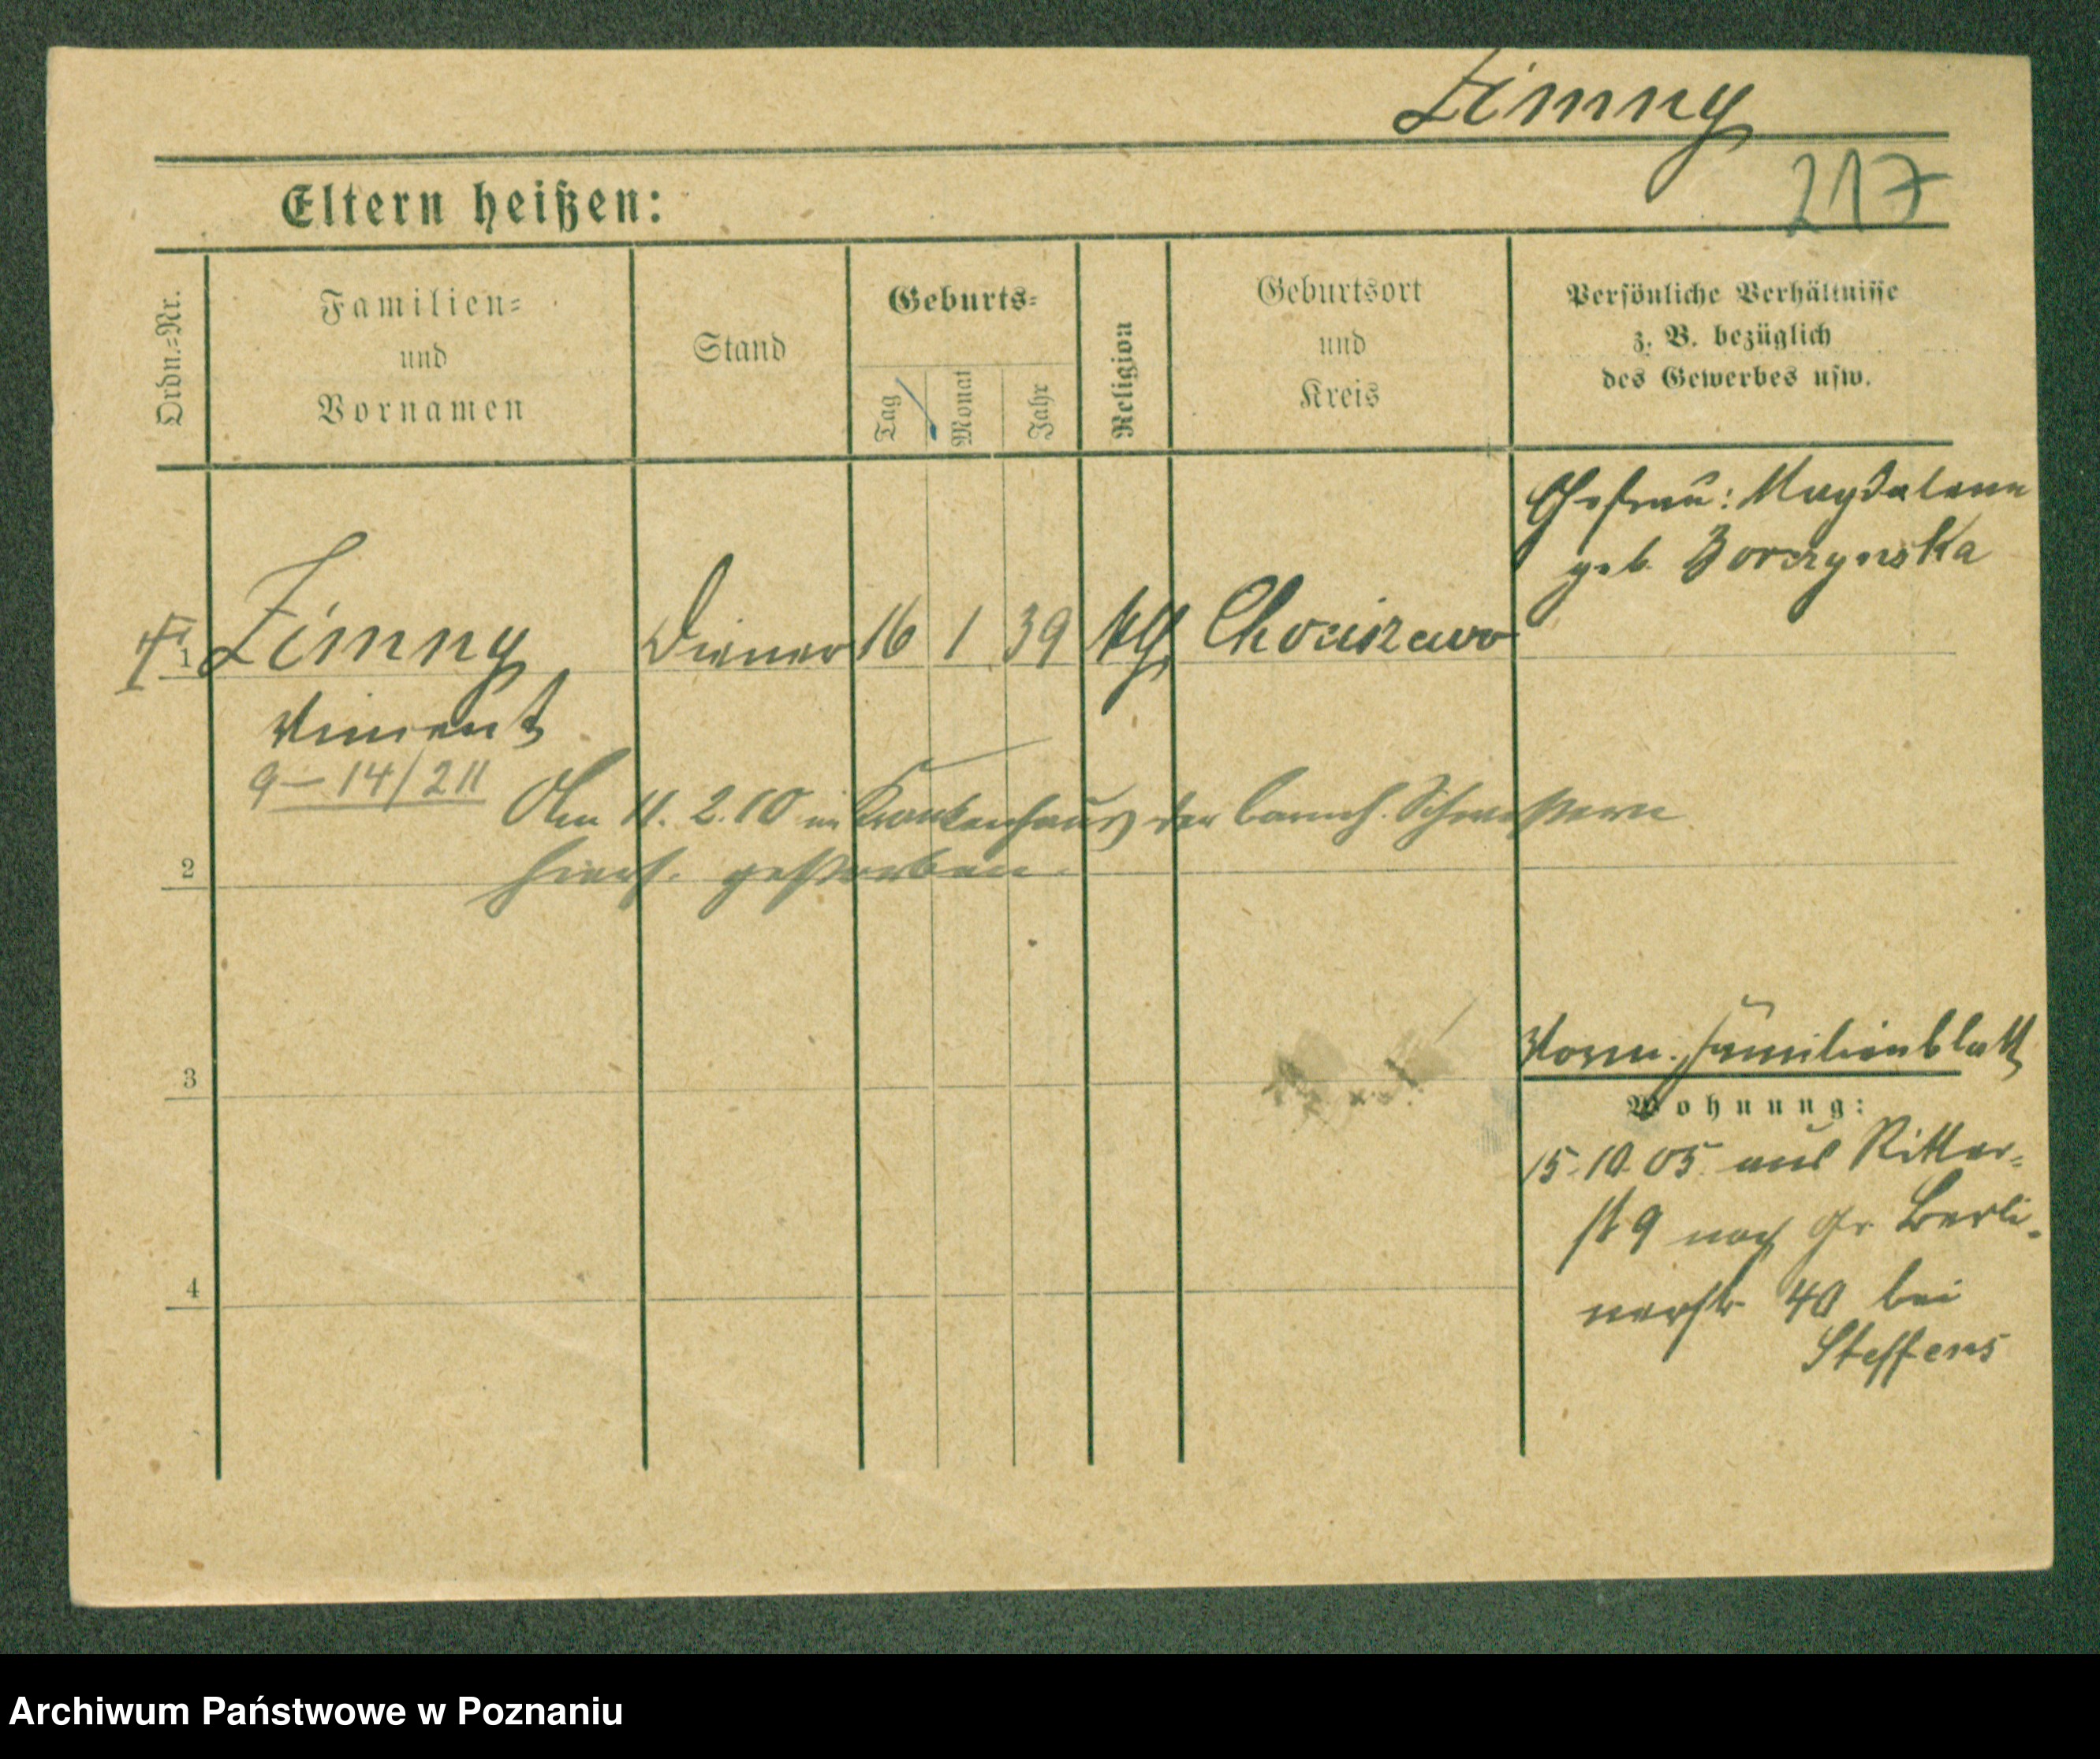 Zimny
217
Eltern heißen:
Ordn.=Nr.
Familien=
und
Vornamen
Stand
Geburts=
Tag
Monat
Jahr
Religion
Geburtsort
und
Kreis
Persönliche Verhältnisse
z. B. bezüglich
des Gewerbes usw.
Ehefrau: Magdalena
geb.
1 Zimny Diener 16 1 39 Chociszewo
Vincent
9–14/211
Am 11. 2. 10 im Krankenhaus der barmh. Schwestern
hiers. gestorben.
2
3
4
Familienblatt
Wohnung:
15. 10. 05. aus Ritter=
st 9 nach Gr Berli-
nerstr 40 bei
Steffens
Archiwum Państwowe w Poznaniu